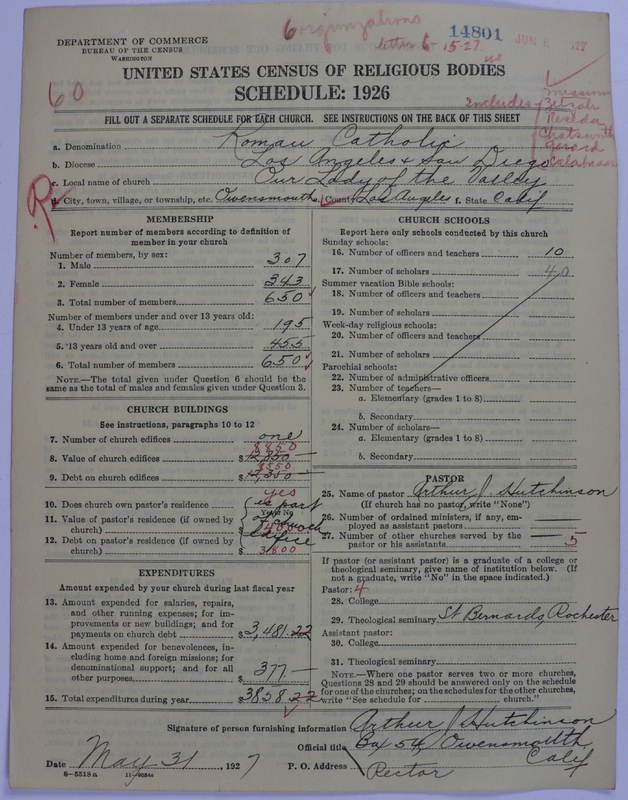 6 organizations
letter 6-15-27
14801
JUN 6 1927
DEPARTMENT OF COMMERCE
BUREAU OF THE CENSUS
WASHINGTON
UNITED STATES CENSUS OF RELIGIOUS BODIES
SCHEDULE: 1926
60
Includes
Zelzah
Reseda
Chatsworth
Girard
Calabasas
FILL OUT A SEPARATE SCHEDULE FOR EACH CHURCH. SEE INSTRUCTIONS ON THE BACK OF THIS SHEET
a. Denomination Roman Catholic
b. Diocese Los Angeles & San Diego
c. Local name of church Our Lady of the Valley
R
d. City, town, village, or township, etc. Owensmouth e. County Los Angeles f. State Calif
MEMBERSHIP
Report number of members according to definition of
member in your church
Number of members, by sex:
1. Male 307
2. Female 343
3. Total number of members 650
Number of members under and over 13 years old:
4. Under 13 years of age 195
5. 13 years old and over 455
6. Total number of members 650
NOTE.—The total given under Question 6 should be the
same as the total of males and females given under Question 3.
CHURCH BUILDINGS
See instructions, paragraphs 10 to 12
7. Number of church edifices one
8850
8. Value of church edifices $ 12,850
8550
9. Debt on church edifices $ 12,350
yes
10. Does church own pastor's residence is part
Yes or No
11. Value of pastor's residence (if owned by
church) $ 4000
of church
12. Debt on pastor's residence (if owned by edifice
church) $ 3800
EXPENDITURES
Amount expended by your church during last fiscal year
13. Amount expended for salaries, repairs,
and other running expenses; for im-
provements or new buildings; and for
payments on church debt $ 3,481.22
14. Amount expended for benevolences, in-
cluding home and foreign missions; for
denominational support; and for all
other purposes $ 377 —
15. Total expenditures during year $ 3858.22
CHURCH SCHOOLS
Report here only schools conducted by this church
Sunday schools:
16. Number of officers and teachers 10
17. Number of scholars 40
Summer vacation Bible schools:
18. Number of officers and teachers
19. Number of scholars
Week-day religious schools:
20. Number of officers and teachers
21. Number of scholars
Parochial schools:
22. Number of administrative officers
23. Number of teachers—
a. Elementary (grades 1 to 8)
b. Secondary
24. Number of scholars—
a. Elementary (grades 1 to 8)
b. Secondary
PASTOR
25. Name of pastor Arthur J Hutchinson
(If church has no pastor, write "None")
26. Number of ordained ministers, if any, em-
ployed as assistant pastors —
27. Number of other churches served by the
pastor or his assistants 5
If pastor (or assistant pastor) is a graduate of a college or
theological seminary, give name of institution below. (If
not a graduate, write "No" in the space indicated.)
Pastor: 4
28. College
29. Theological seminary St Bernards, Rochester
Assistant pastor:
30. College
31. Theological seminary
NOTE.—Where one pastor serves two or more churches,
Questions 28 and 29 should be answered only on the schedule
for one of the churches; on the schedules for the other churches,
write "See schedule for church."
Signature of person furnishing information Arthur J Hutchinson
Official title Box 54 Owensmouth
Calif
Date May 31, 1927 P. O. Address Rector
8-5518 a